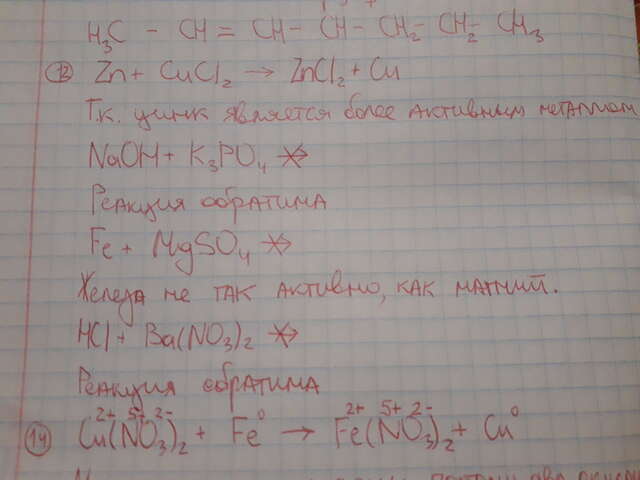 H₃C - CH = CH - CH - CH₂ - CH₂ - CH₃
12 Zn + CuCl₂ → ZnCl₂ + Cu
Т.к. цинк является более активным металлом
NaOH + K₃PO₄ ↛
Реакция обратима
Fe + MgSO₄ ↛
Железа не так активно, как магний.
HCl + Ba(NO₃)₂ ↛
Реакция обратима
2+ 5+ 2- 0 2+ 5+ 2- 0
14 Cu(NO₃)₂ + Fe → Fe(NO₃)₂ + Cu